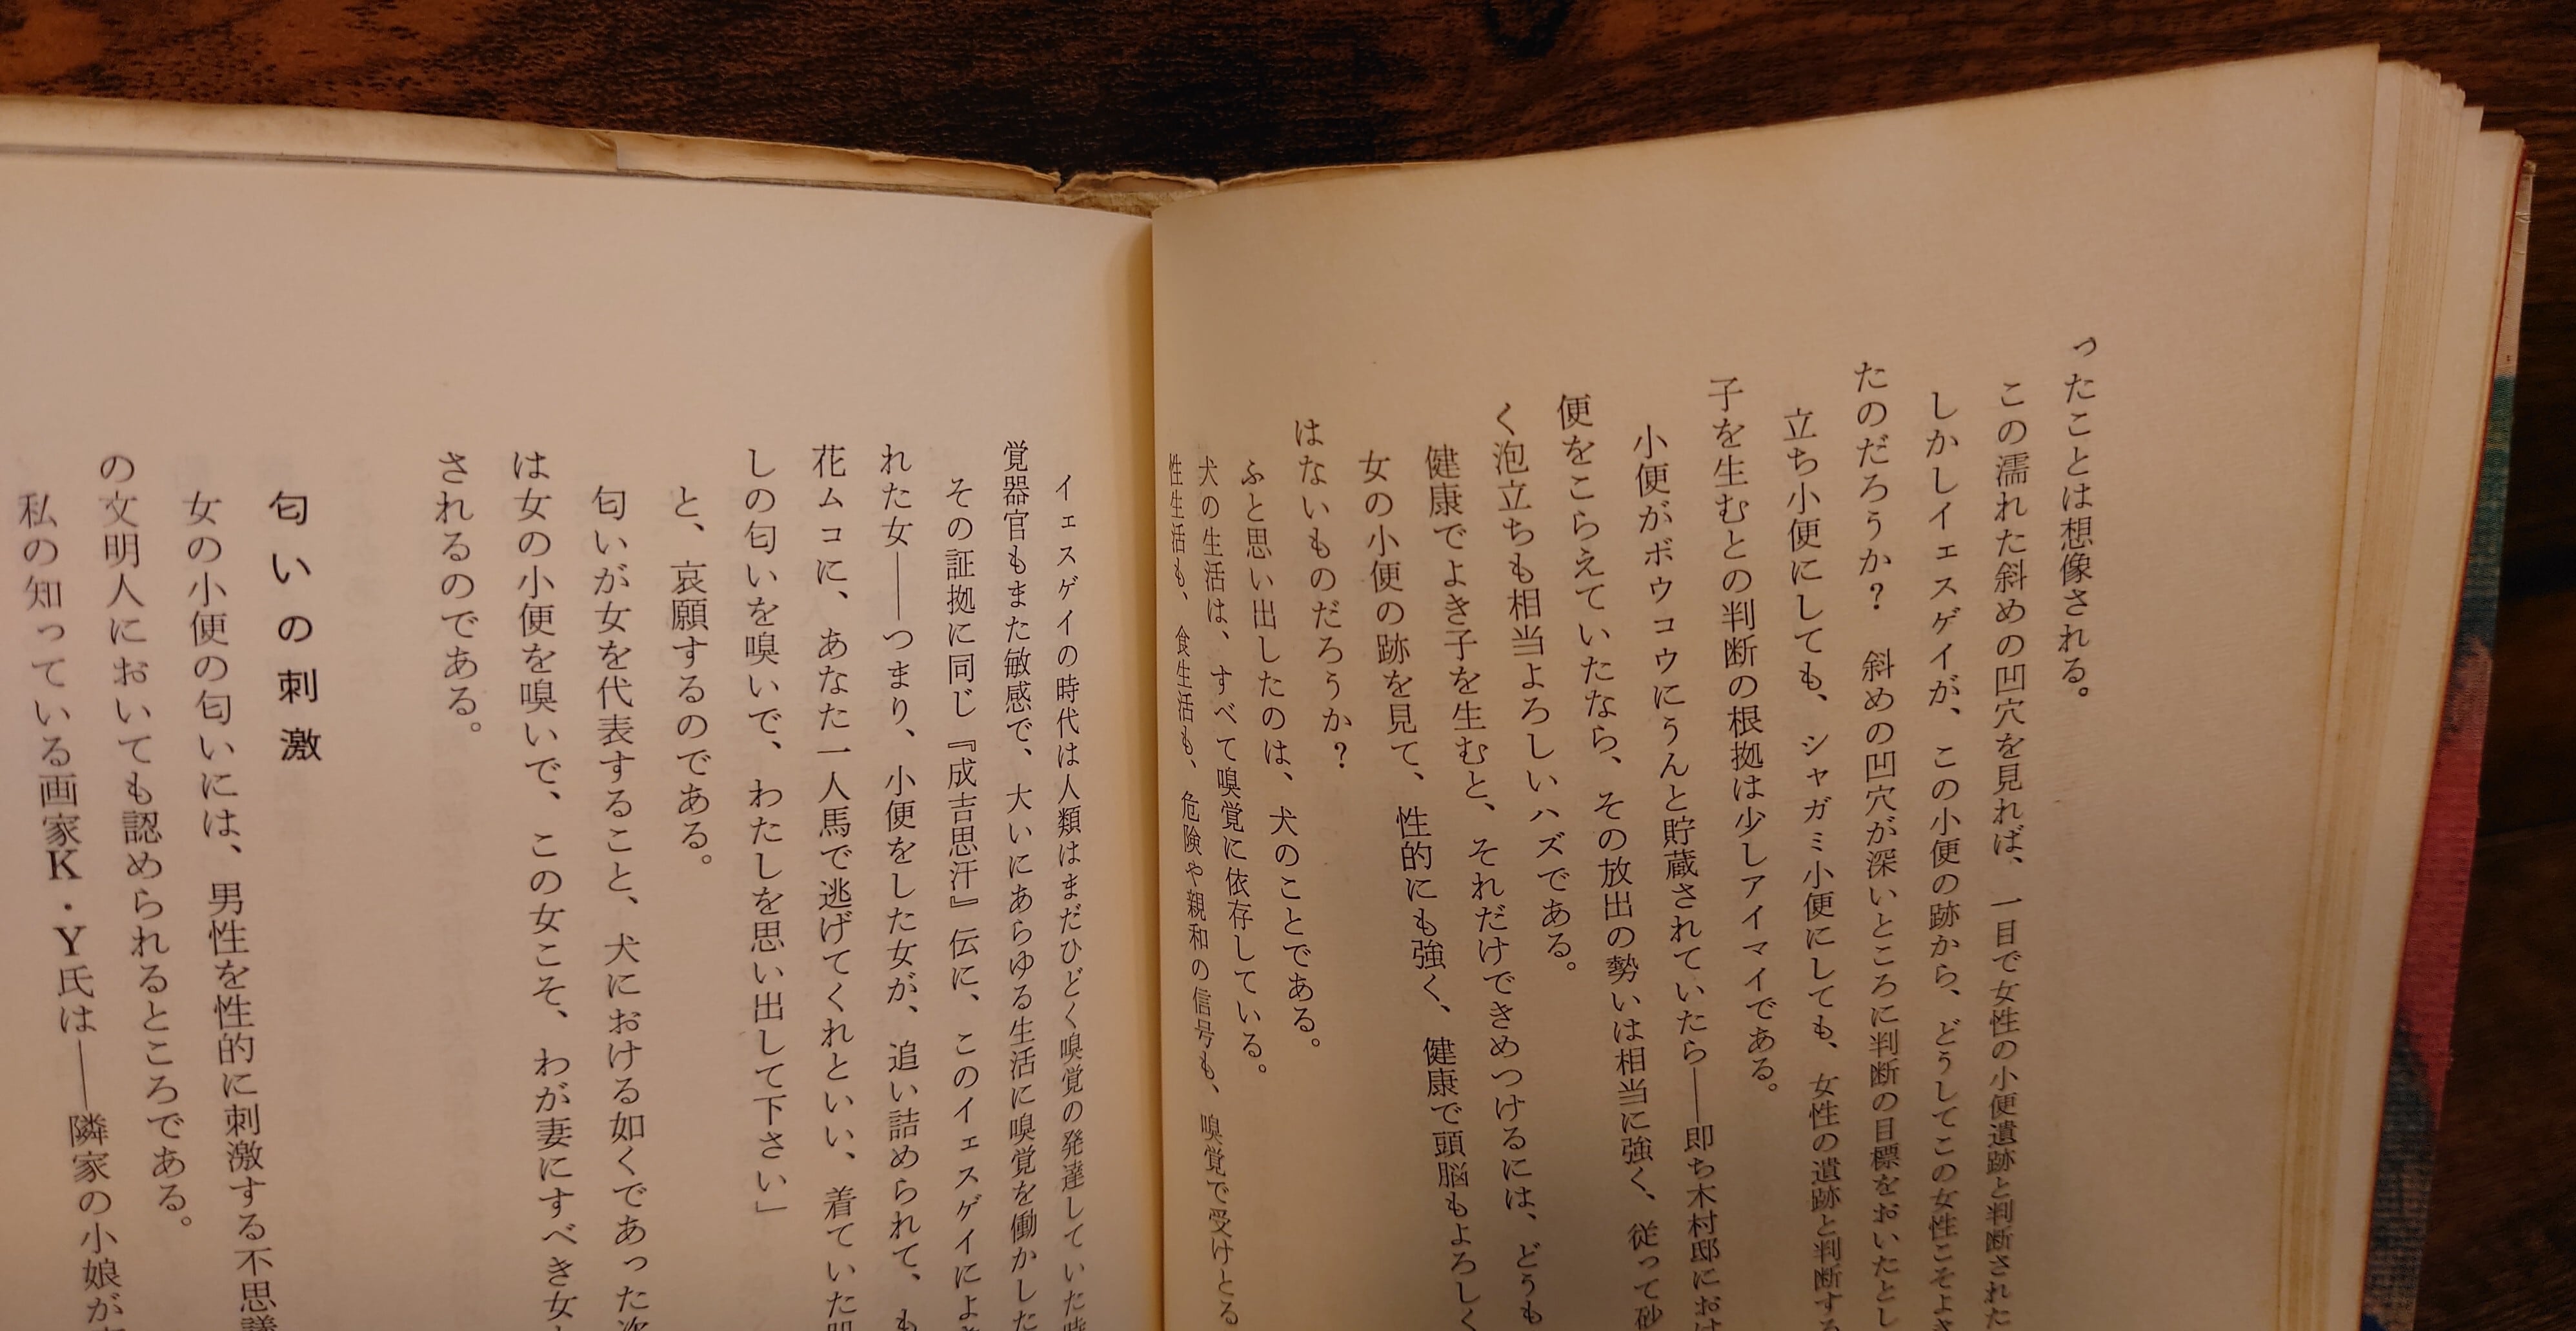 ったことは想像される。
この濡れた斜めの凹穴を見れば、一目で女性の小便遺跡と判断された
しかしイェスゲイが、この小便の跡から、どうしてこの女性こそよき
たのだろうか？　斜めの凹穴が深いところに判断の目標をおいたとし
立ち小便にしても、シャガミ小便にしても、女性の遺跡と判断する
子を生むとの判断の根拠は少しアイマイである。
小便がボウコウにうんと貯蔵されていたら――即ち木村邸におけ
便をこらえていたなら、その放出の勢いは相当に強く、従って砂
く泡立ちも相当よろしいハズである。
健康でよき子を生むと、それだけできめつけるには、どうも
女の小便の跡を見て、性的にも強く、健康で頭脳もよろしく
はないものだろうか？
ふと思い出したのは、犬のことである。
犬の生活は、すべて嗅覚に依存している。
性生活も、食生活も、危険や親和の信号も、嗅覚で受けとる
イェスゲイの時代は人類はまだひどく嗅覚の発達していた時
覚器官もまた敏感で、大いにあらゆる生活に嗅覚を働かした
その証拠に同じ『成吉思汗』伝に、このイェスゲイによ
れた女――つまり、小便をした女が、追い詰められて、も
花ムコに、あなた一人馬で逃げてくれといい、着ていた
しの匂いを嗅いで、わたしを思い出して下さい」
と、哀願するのである。
匂いが女を代表すること、犬における如くであった
は女の小便を嗅いで、この女こそ、わが妻にすべき女
されるのである。
匂いの刺激
女の小便の匂いには、男性を性的に刺激する不思議
の文明人においても認められるところである。
私の知っている画家K・Y氏は――隣家の小娘が